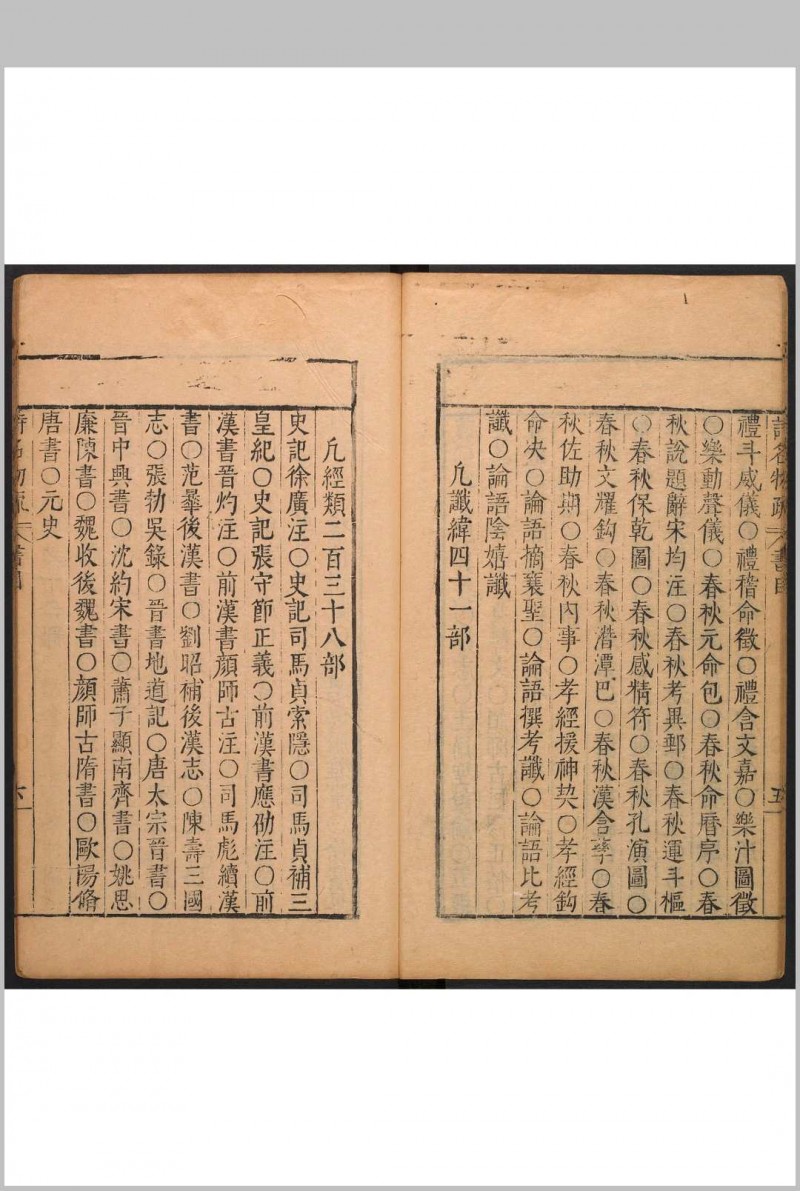 禮斗威儀〇禮稽命徵〇禮含文嘉〇樂汁圖徵
〇樂動聲儀〇春秋元命包〇春秋命曆序〇春
秋說題辭宋均注〇春秋考異郵〇春秋運斗樞
〇春秋保乾圖〇春秋感精符〇春秋孔演圖〇
春秋文耀鈎〇春秋潛潭巴〇春秋漢含孳〇春
秋佐助期〇春秋內事〇孝經援神契〇孝經鈎
命决〇論語摘襄聖〇論語撰考讖〇論語比考
讖〇論語陰嬉讖
凡讖緯四十一部
凡經類二百三十八部
史記徐廣注〇史記司馬貞索隱〇司馬貞補三
皇紀〇史記張守節正義〇前漢書應劭注〇前
漢書晉灼注〇前漢書顔師古注〇司馬彪續漢
書〇范曅後漢書〇劉昭補後漢志〇陳壽三國
志〇張勃吳錄〇晉書地道記〇唐太宗晉書〇
晉中興書〇沈約宋書〇蕭子顯南齊書〇姚思
廉陳書〇魏收後魏書〇顔師古隋書〇歐陽脩
唐書〇元史